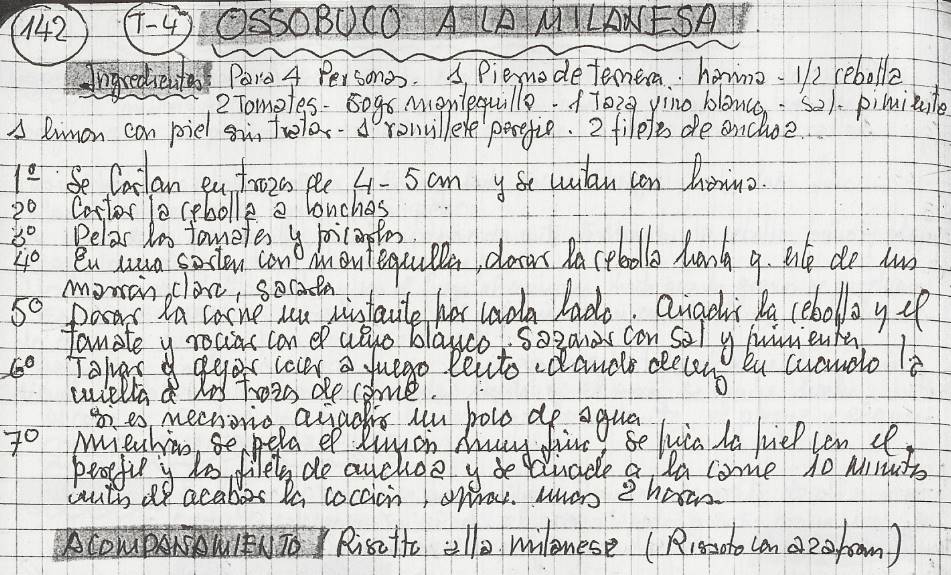 142 T-4 OSSOBUCO A LA MILANESA
Ingredientes Para 4 Personas. 1 Pierna de Ternera. harina - 1/2 cebolla
2 Tomates - 50gr mantequilla - 1 Taza vino blanco - Sal - pimienta
1 limon con piel sin tratar - 1 ramillete perejil. 2 filetes de anchoa
1º Se Cortan en trozos de 4-5 cm y se untan con harina.
2º Cortar la cebolla a lonchas
3º Pelar los tomates y picarlos.
4º En una sarten con mantequilla, dorar la cebolla hasta q. esté de un
marron claro, sacarla
5º Dorar la carne un instante por cada lado. Añadir la cebolla y el
tomate y rociar con el vino blanco. Sazonar con Sal y pimienta
6º Tapar y dejar cocer a fuego lento, dando de vez en cuando la
vuelta a los trozos de carne.
Si es necesario añadir un poco de agua
7º Mientras se pela el limon muy fino, se pica la piel con el
perejil y los filetes de anchoa y se añade a la carne 10 Minutos
antes de acabar la coccion, aprox. unas 2 horas.
ACOMPAÑAMIENTO / Risotto alla milanese (Rissoto con azafran)